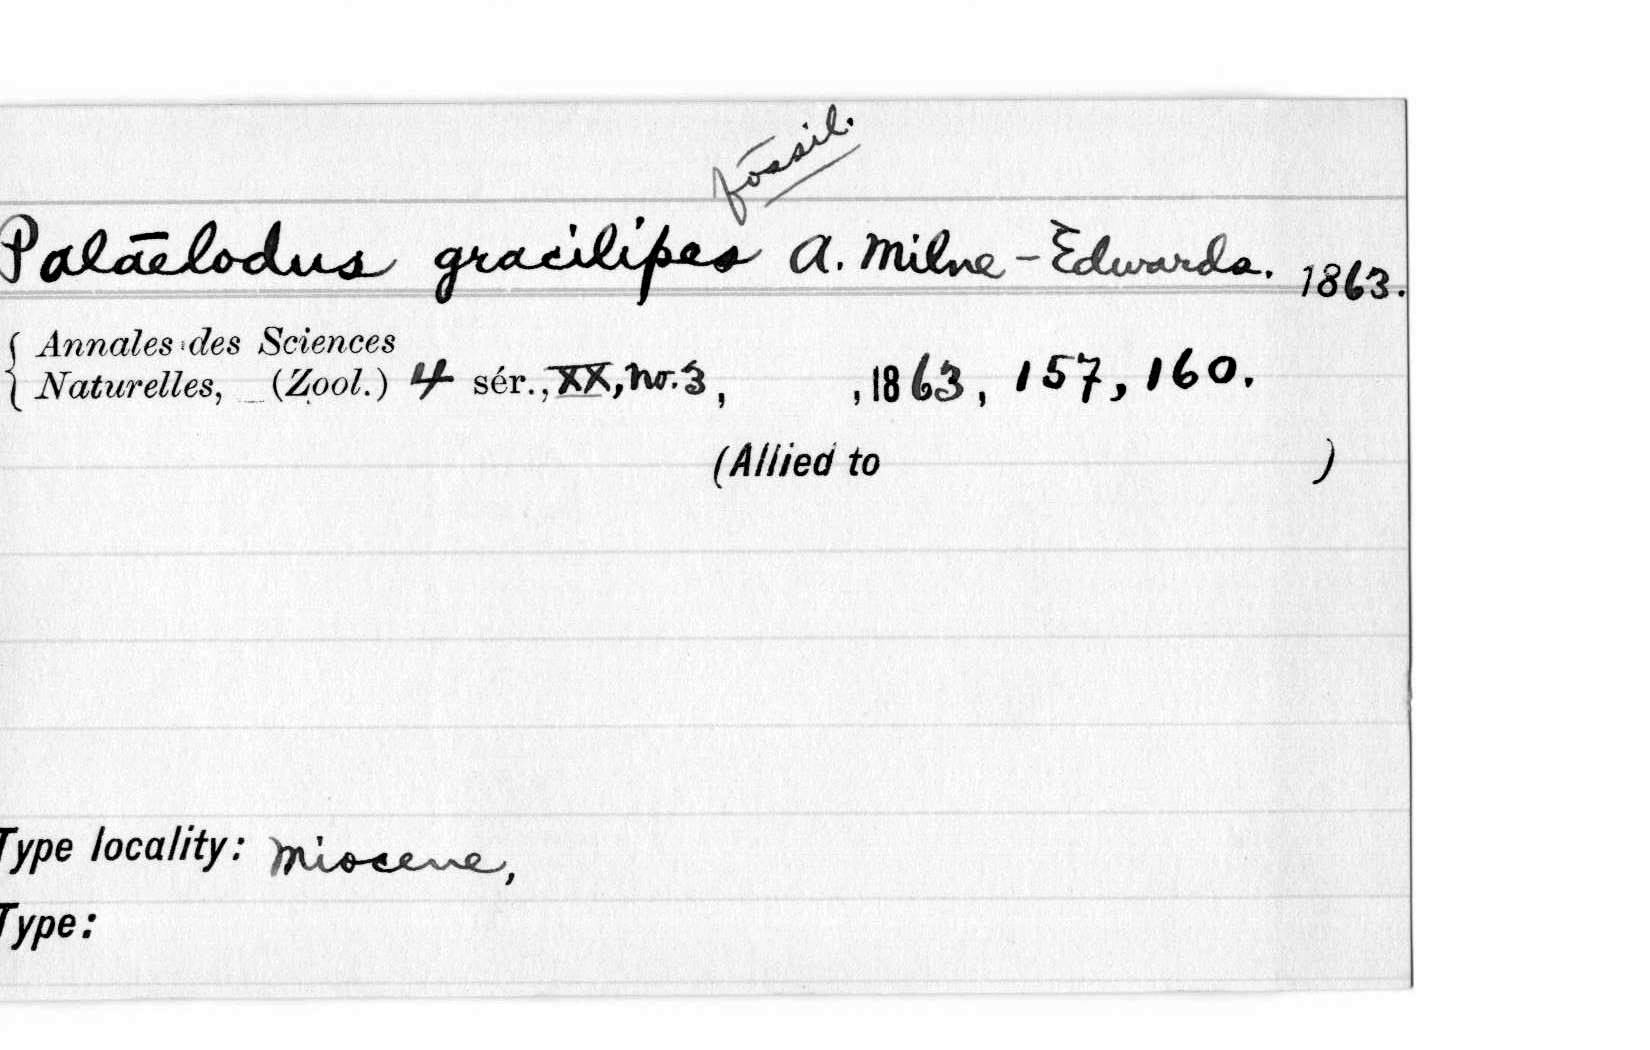 fossil.
Palaelodus gracilipes A. Milne-Edwards. 1863.
Annales des Sciences
Naturelles, (Zool.) 4 sér., XX, No. 3, , 1863, 157, 160.
(Allied to )
Type locality: Miocene,
Type: